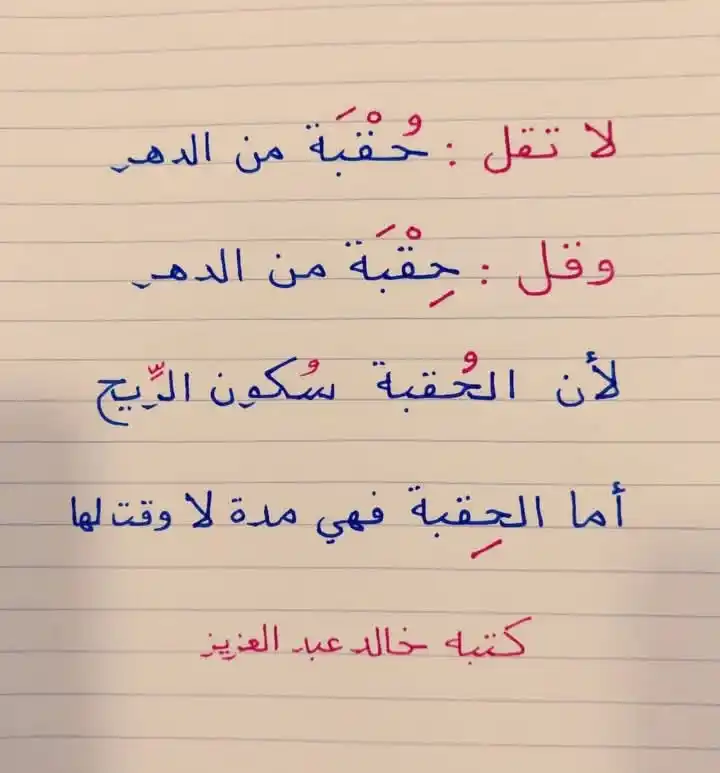 لا تقل : حُقْبَة من الدهر
وقل : حِقْبَة من الدهر
لأن الحُقبة سُكون الرِّيح
أما الحِقبة فهي مدة لا وقت لها
كتبه خالد عبد العزيز